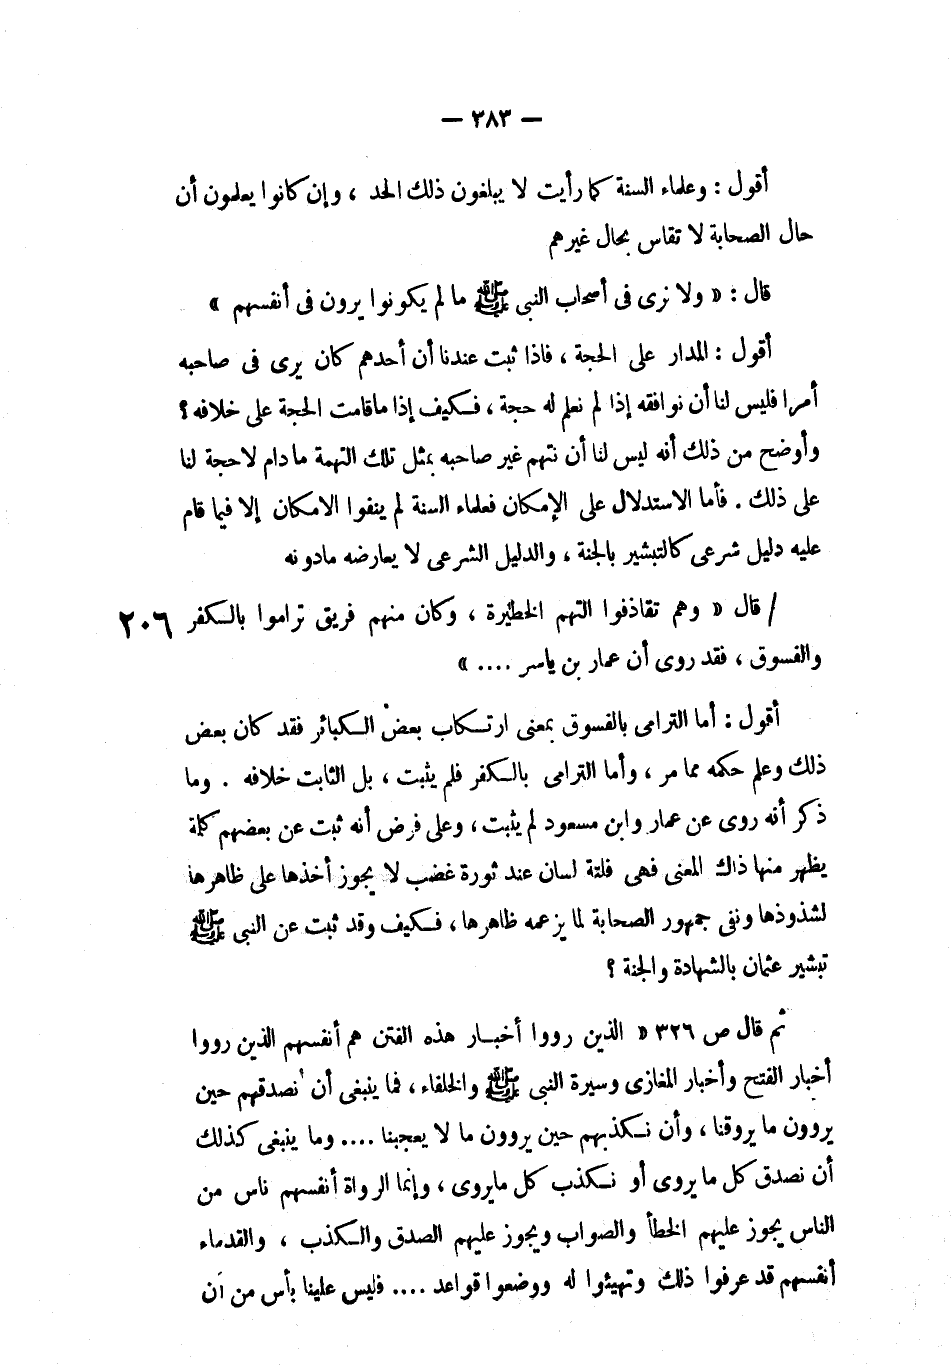 — ٣٨٣ —
أقول : وعلماء السنة كما رأيت لا يبلغون ذلك الحد ، وإن كانوا يعلمون أن
حال الصحابة لا تقاس بحال غيرهم
قال : « ولا نرى فى أصحاب النبى ﷺ ما لم يكونوا يرون فى أنفسهم »
أقول : المدار على الحجة ، فاذا ثبت عندنا أن أحدهم كان يرى فى صاحبه
أمرا فليس لنا أن نوافقه إذا لم نعلم له حجة ، فكيف إذا ماقامت الحجة على خلافه ؟
وأوضح من ذلك أنه ليس لنا أن نتهم غير صاحبه بمثل تلك التهمة مادام لاحجة لنا
على ذلك . فأما الاستدلال على الإمكان فعلماء السنة لم ينفوا الامكان إلا فيما قام
عليه دليل شرعى كالتبشير بالجنة ، والدليل الشرعى لا يعارضه مادونه
/ قال « وهم تقاذفوا التهم الخطيرة ، وكان منهم فريق تراموا بالكفر ٢٠٦
والفسوق ، فقد روى أن عمار بن ياسر .... »
أقول : أما الترامى بالفسوق بمعنى ارتكاب بعض الكبائر فقد كان بعض
ذلك وعلم حكمه مما مر ، وأما الترامى بالكفر فلم يثبت ، بل الثابت خلافه . وما
ذكر أنه روى عن عمار وابن مسعود لم يثبت ، وعلى فرض أنه ثبت عن بعضهم كلمة
يظهر منها ذاك المعنى فهى فلتة لسان عند ثورة غضب لا يجوز أخذها على ظاهرها
لشذوذها ونفى جمهور الصحابة لما يزعمه ظاهرها ، فكيف وقد ثبت عن النبى ﷺ
تبشير عثمان بالشهادة والجنة ؟
ثم قال ص ٣٢٦ « الذين رووا أخبار هذه الفتن هم أنفسهم الذين رووا
أخبار الفتح وأخبار المغازى وسيرة النبى ﷺ والخلفاء ، فما ينبغى أن نصدقهم حين
يروون ما يروقنا ، وأن نكذبهم حين يروون ما لا يعجبنا .... وما ينبغى كذلك
أن نصدق كل ما يروى أو نكذب كل مايروى ، وإنما الرواة أنفسهم ناس من
الناس يجوز عليهم الخطأ والصواب ويجوز عليهم الصدق والكذب ، والقدماء
أنفسهم قد عرفوا ذلك وتهيئوا له ووضعوا قواعد .... فليس علينا بأس من أن